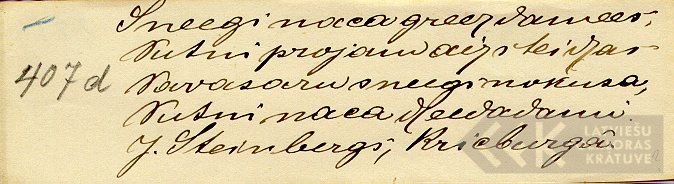 Sneegi naca greezdamees,
Putni projam aizsteidzas
Pavasaru sneegi nokusa,
Putni naca dzeedadami.
407d
J. Steinbergs, Kricburgā.
LATVIEŠU
FOLKLORAS
KRĀTUVE